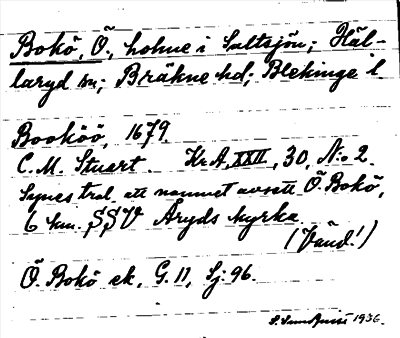 Bokö, Ö., holme i Saltsjön; Häl-
laryd sn; Bräkne hd; Blekinge l.
Booköö, 1679.
C. M. Stuart. Kr. A, XXII, 30, N:o 2.
Synes trol. att namnet avsett Ö. Bokö,
6 km. SSV Åryds kyrka.
(Vänd!)
Ö. Bokö ek, G. 11, Sj. 96.
1936.